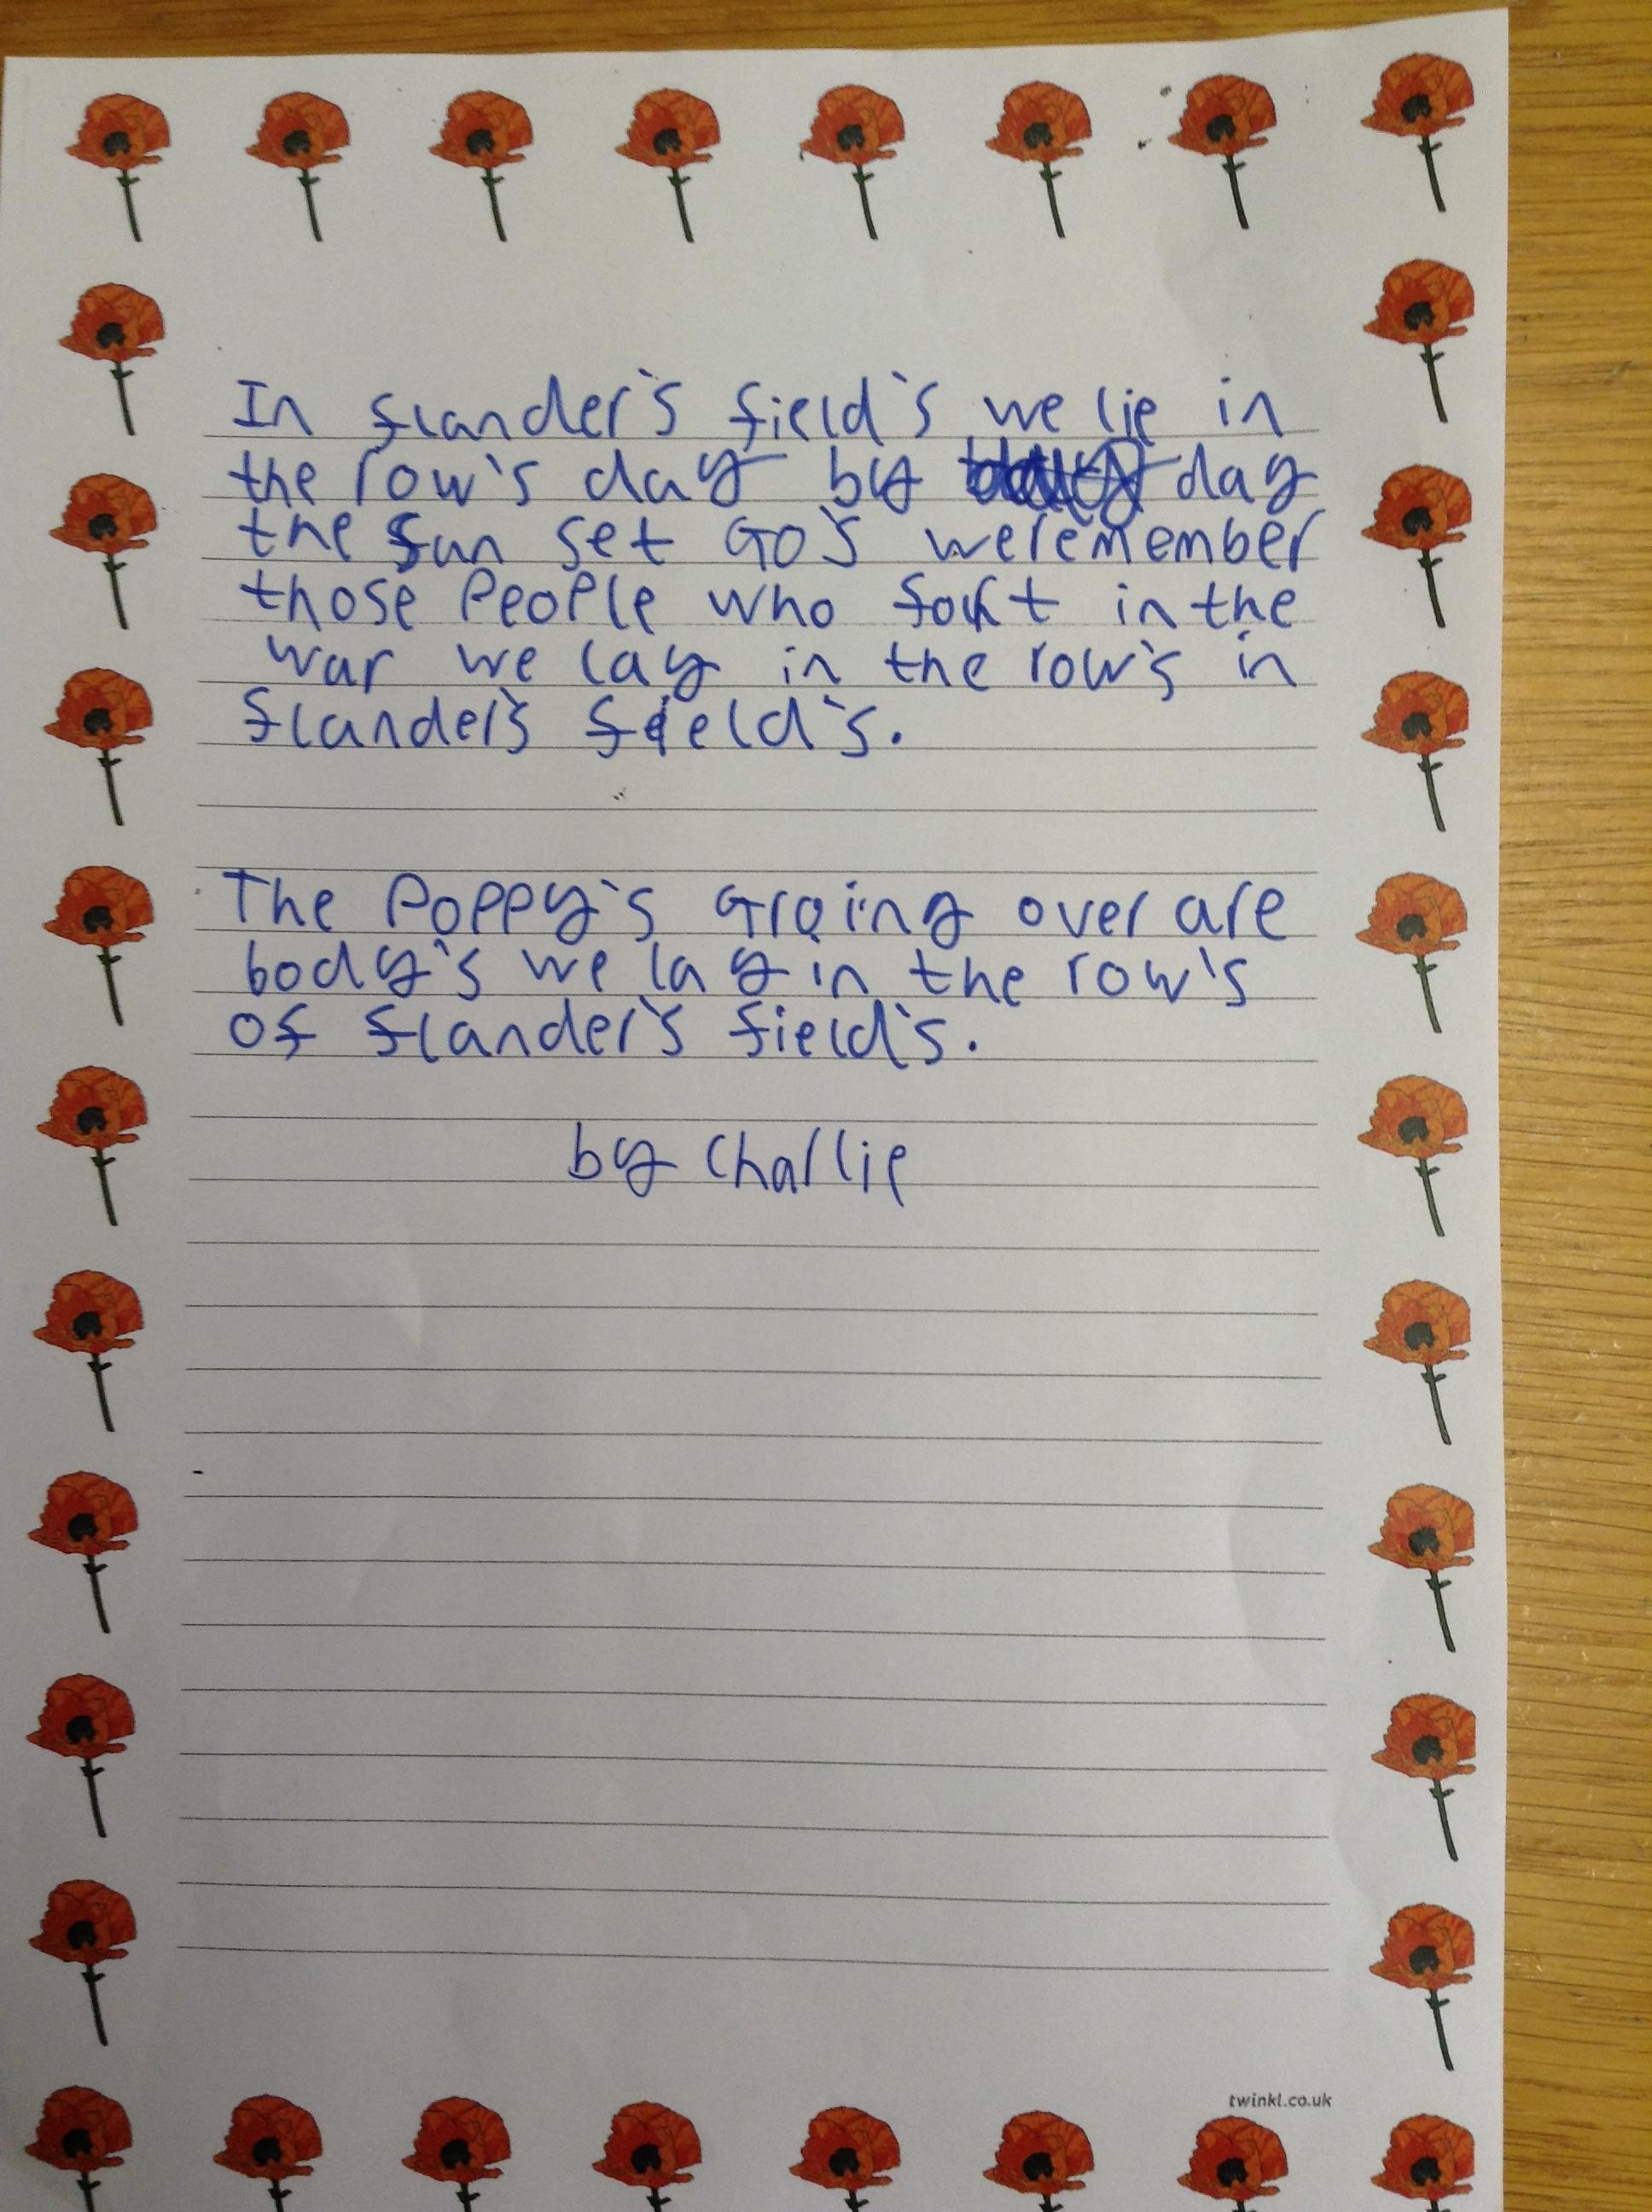 In flander's field's we lie in
the row's day by day
the sun set GO's we remember
those PeoPle who foht in the
war we lay in the row's in
flander's field's.
The PoPPy's Groing over are
body's we lay in the row's
of flander's field's.
by Charlie
twinkl.co.uk